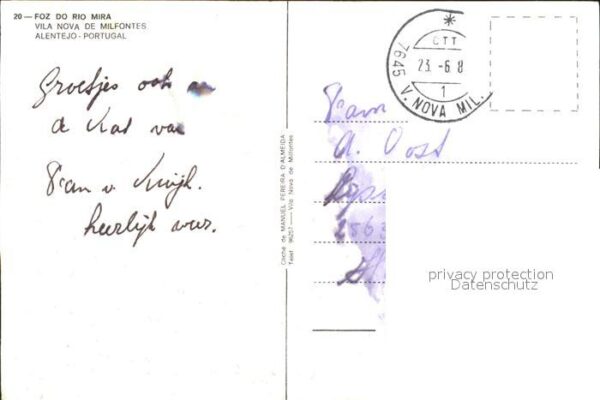 20 — FOZ DO RIO MIRA
VILA NOVA DE MILFONTES
ALENTEJO - PORTUGAL
Groetjes ook
de Kat
Fam v.
heerlijk weer.
Cliché de MANUEL PEREIRA D'ALMEIDA
Telef. 96257 — Vila Nova de Milfontes
*
CTT
23. -6.8
1
7645 V. NOVA MIL.
Fam
A. Oost
2563
privacy protection
Datenschutz